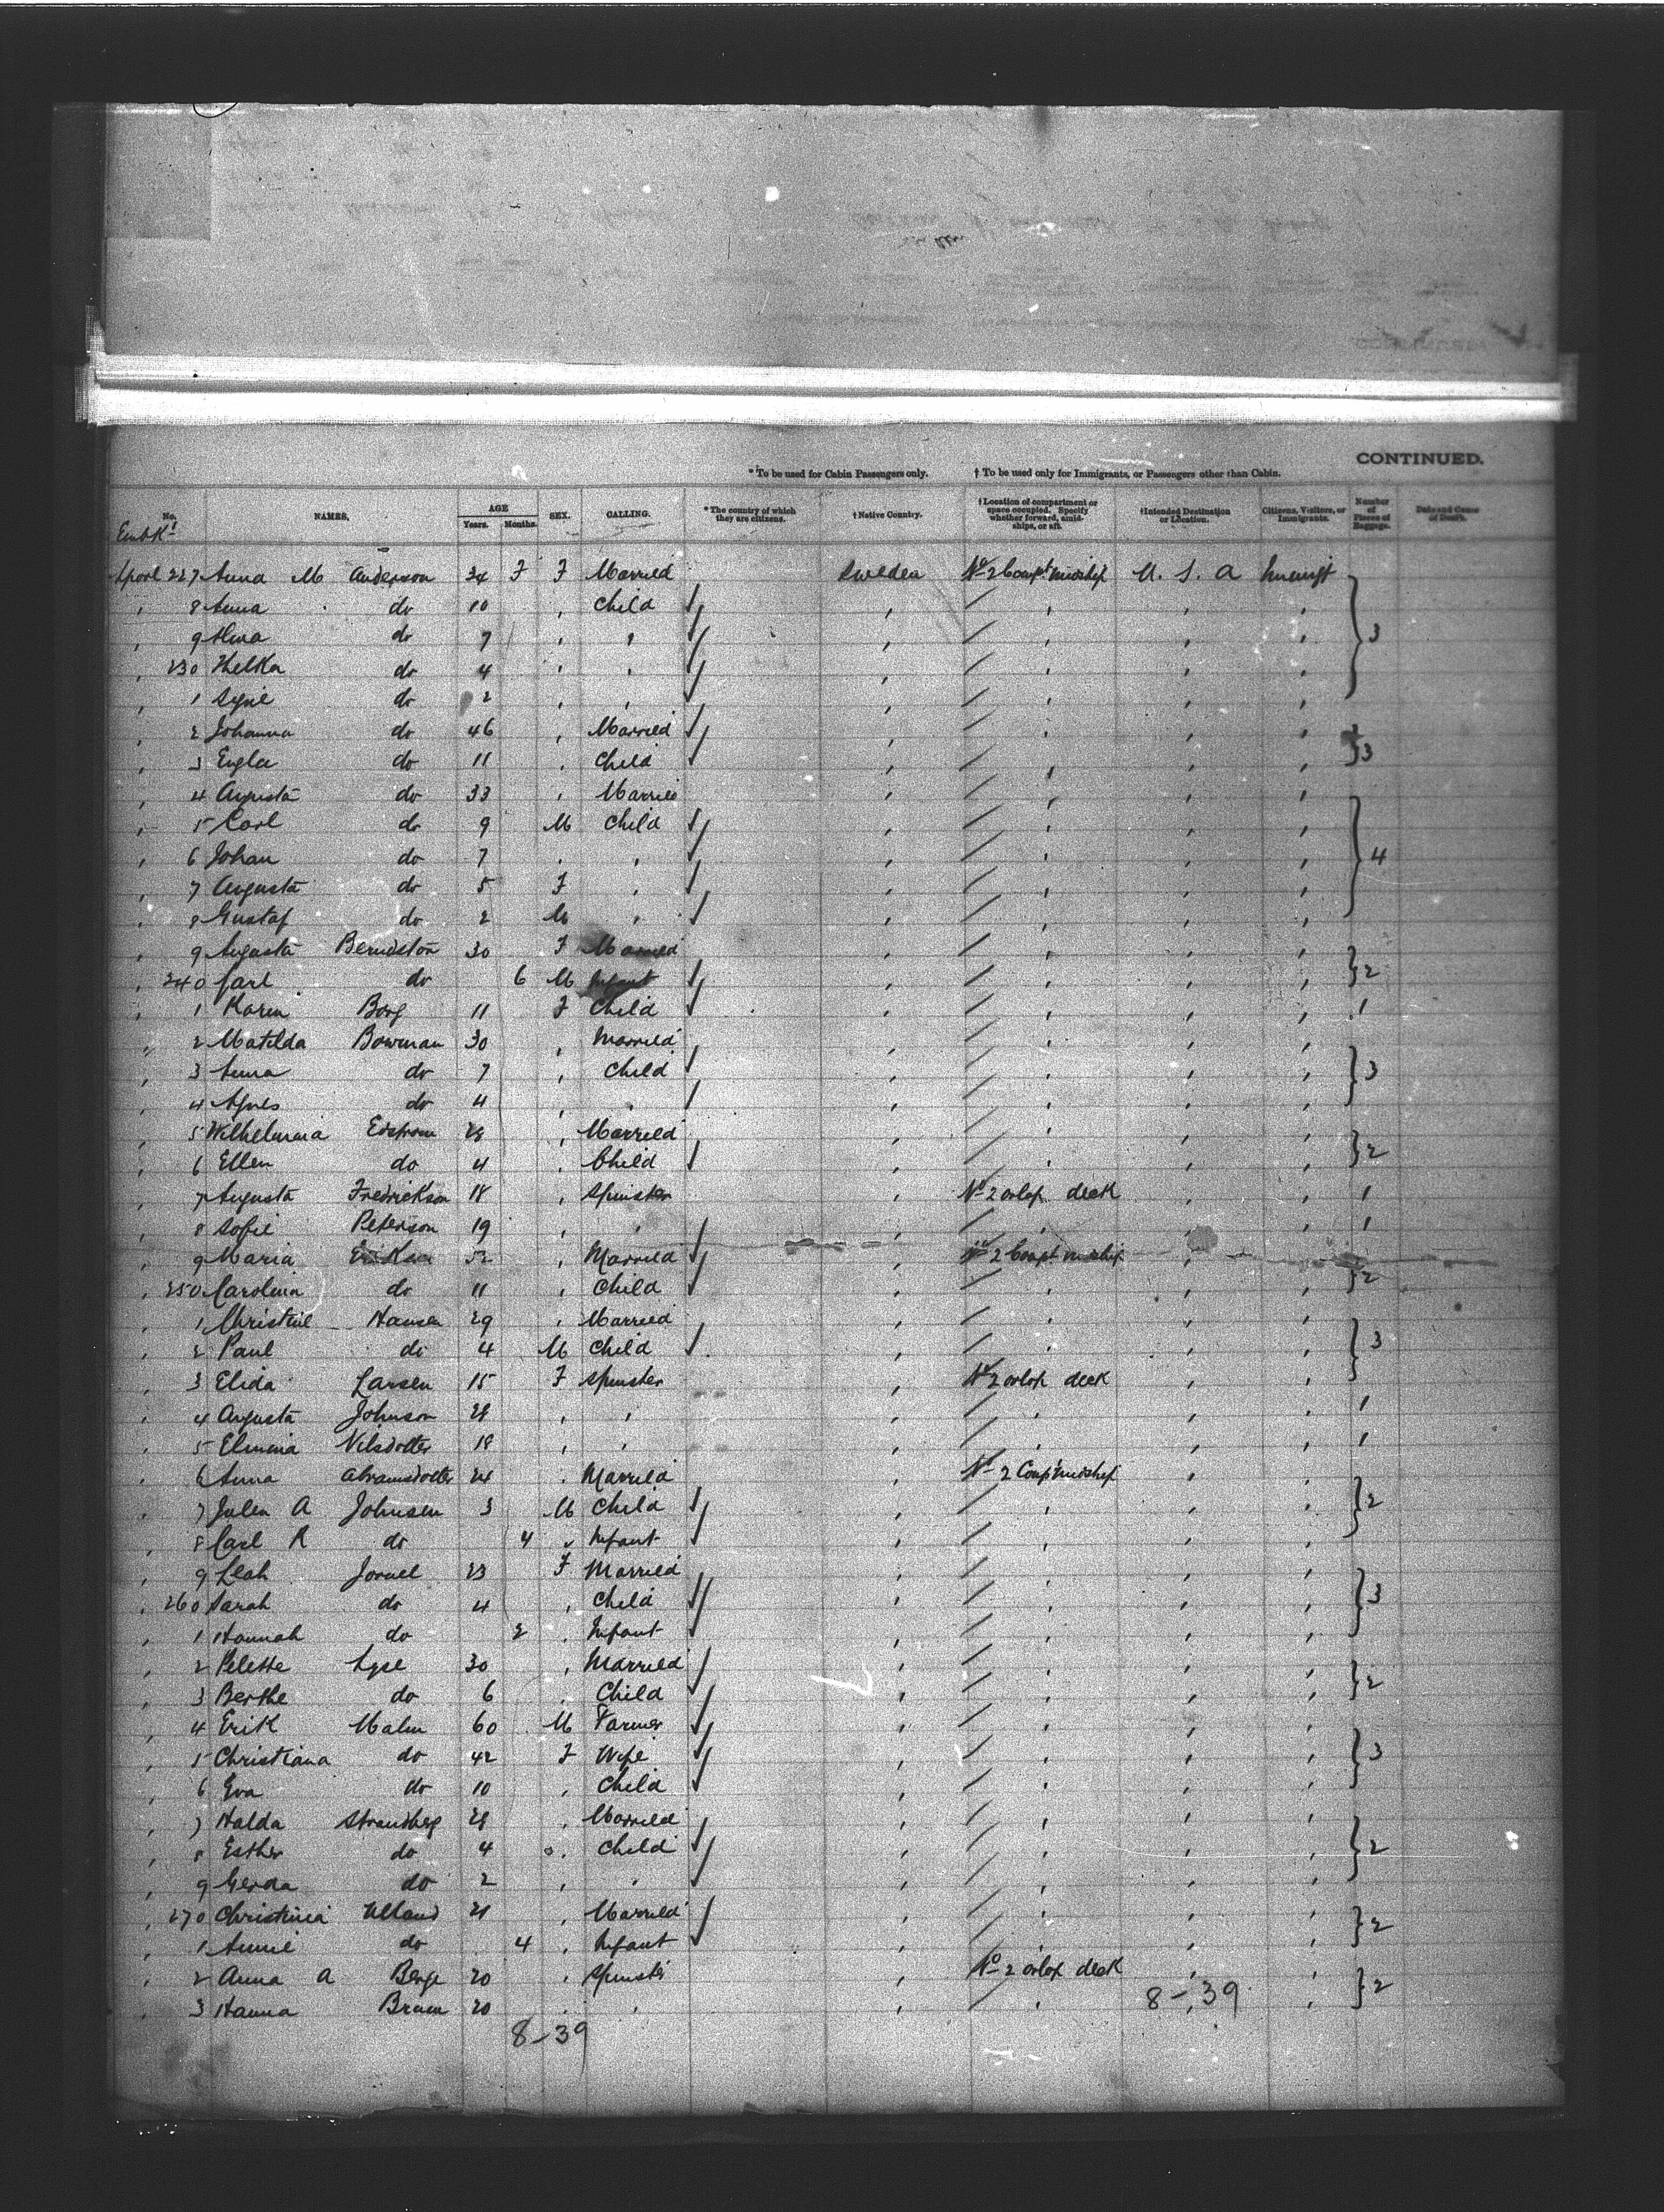 CONTINUED.
* To be used for Cabin Passengers only. † To be used only for Immigrants, or Passengers other than Cabin.
No. NAMES. AGE Years. Months. SEX. CALLING. * The country of which they are citizens. † Native Country. † Location of compartment or space occupied. Specify whether forward, amidships, or aft. † Intended Destination or Location. Citizens, Visitors, or Immigrants. Number of Pieces of Baggage. Date and Cause of Death.
Embk
Lpool 227 Anna M Anderson 34 F F Married Sweden No 2 Compt midship U. S. A
, 8 Anna do 10 , Child
, 9 Alma do 7 , , 3
, 230 do 4 , ,
, 1 do 2 , ,
, 2 Johanna do 46 , Married
, 3 do 11 , Child 3
, 4 Augusta do 33 , Married
, 5 Carl do 9 M Child
, 6 Johan do 7 , , 4
, 7 Augusta do 5 F ,
, 8 Gustaf do 2 M ,
, 9 Augusta 30 F Married
, 240 Carl do 6 M Infant 2
, 1 Karin Borg 11 F Child 1
, 2 Matilda Bowman 30 , Married
, 3 Anna do 7 , Child 3
, 4 Agnes do 4 , ,
, 5 Wilhelmina Edstrom 28 , Married
, 6 Ellen do 4 , Child 2
, 7 Augusta Fredrickson 18 , Spinster No 2 orlop deck 1
, 8 Sofie Peterson 19 , , 1
, 9 Maria Erikson 52 , Married No 2 Compt midship
, 250 Carolina do 11 , Child 2
, 1 Christine Hansen 29 , Married
, 2 Paul do 4 M Child 3
, 3 Elida Larsen 15 F Spinster No 2 orlop deck
, 4 Augusta Johnson 28 , , 1
, 5 Nilsdotter 18 , , 1
, 6 Anna Abramsdotter 24 , Married No 2 Compt midship
, 7 A Johnsen 3 M Child 2
, 8 Carl R do 4 , Infant
, 9 Leah 23 F Married
, 260 Sarah do 4 , Child 3
, 1 Hannah do 2 , Infant
, 2 30 , Married
, 3 Berthe do 6 , Child 2
, 4 Erik Malm 60 M Farmer
, 5 Christiana do 42 F Wife 3
, 6 Eva do 10 , Child
, 7 Halda Strandberg 28 , Married
, 8 Esther do 4 , Child 2
, 9 Gerda do 2 , ,
, 270 Christina 21 , Married
, 1 Annie do 4 , Infant 2
, 2 Anna A Berge 20 , Spinster No 2 orlop deck
, 3 Hanna 20 , , 8-39 2
8-39